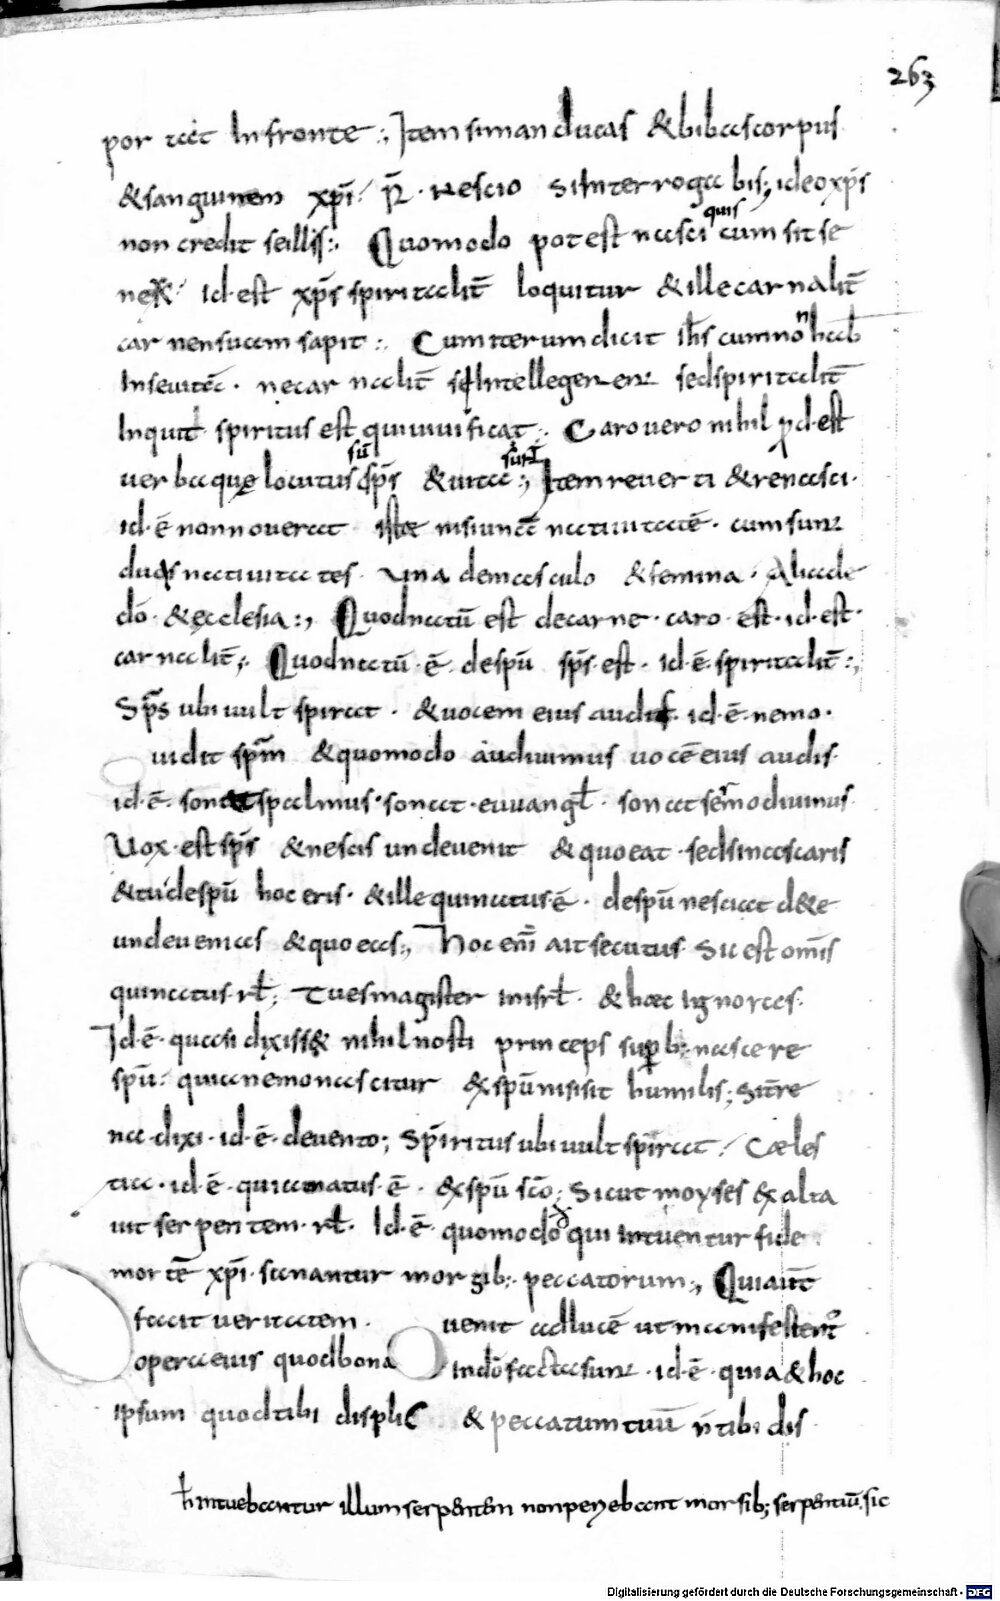 263
portat In fronte ·, Item si manducas & bibas corpus
& sanguinem xp̄i · R̄ · Nescio si Interrogabis; ideo xp̄s
non credit se illis:· Quomodo potest nasci quis cum sit se
nex · id·est xp̄s spiritalit̄ loquitur & ille carnalit̄
carnen suam sapit :· Cum iterum dicit ih̄s cum non hab
In seuitā · ne carnalit̄ sic Intellegerent sed spiritalit̄
Inquit · spiritus est qui uiuificat :· Caro uero nihil ꝓd·est
uerba quę locutus sū sp̄s & uita sunt :, Item reuerti & renasci·
id·ē non nouerat iste nisi unā natiuitatē · cum sunt
duas natiuitates · Una de masculo & femina · Alia de
dō · & ecclesia :, Quod natū est de carne · caro est · id·est·
carnalit̄ ;· Quod natū · ē despū sp̄s · est · id·ē · spiritalit̄ :,
Sp̄s ubi uult spirat · & uocem eius audis · id·ē · nemo ·
uidit sp̄m & quomodo audiuimus uocē eius audis·
id·ē · sonat spalmus · sonat · euuangl̄ · sonat sermo diuinus
Uox · est sp̄s & nescis unde uenit & quo eat · sed si nascaris
& tu despū hoc eris · & ille qui natus·ē · despū nesciat de te
unde uenias & quo eas :, Hoc enī ait secutus Sic est om̄is
qui natus · rl̄ ; Tu es magister in isrl̄ · & haec Ignoras·
Id·ē · quasi dixiss& nihil nosti princeps suꝑb; nascere
spū · quia nemo nascitur & spū nisi sit humilis ; Si t̄re
na · dixi · id·ē · de uento ; Spiritus ubi uult spirat · Caeles
tia · id·ē · quia natus·ē · & spū sc̄o ; Sicut moyses & alta
uit serpentem · rl̄ · Id·ē · quomodo qui Intuentur fide
mortē xp̄i · sanantur morsib; peccatorum :, Qui aut̄
facit ueritatem · uenit ad lucē ut manifestent̄
opera eius quod bona In dō facta sunt · id·ē · quia & hoc
ipsum quod tibi displic & peccatum tuū n̄ tibi dis
h̄ Intuebantur illum serpentem non periebant morsib; serpentiū · sic
Digitalisierung gefördert durch die Deutsche Forschungsgemeinschaft - DFG